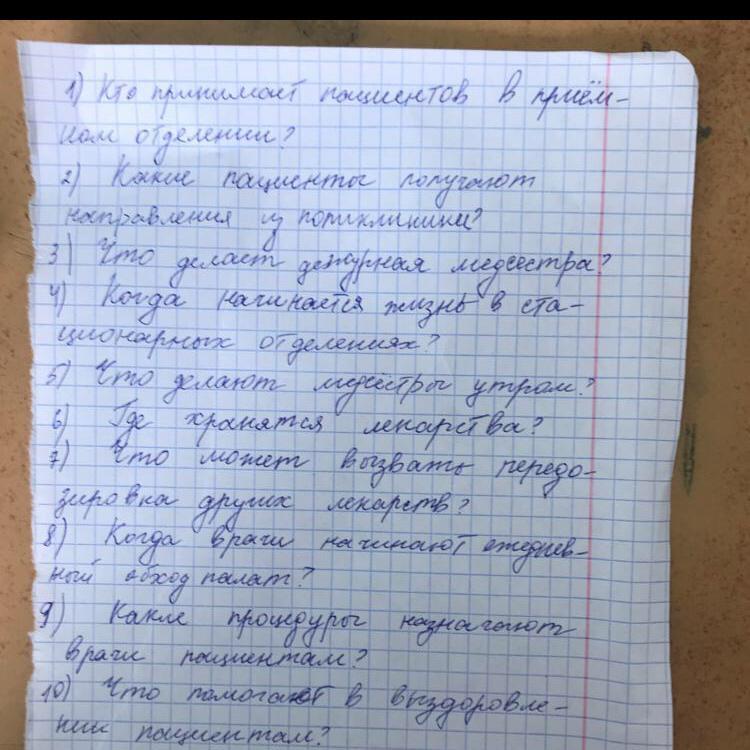 1) Кто принимает пациентов в приём-
ном отделении?
2) Какие пациенты получают
направления из поликлиники?
3) Что делает дежурная медсестра?
4) Когда начинается жизнь в ста-
ционарных отделениях?
5) Что делают медсёстры утром?
6) Где хранятся лекарства?
7) Что может вызвать передо-
зировка других лекарств?
8) Когда врачи начинают ежеднев-
ный обход палат?
9) Какие процедуры назначают
врачи пациентам?
10) Что помогают в выздоровле-
нии пациентам?